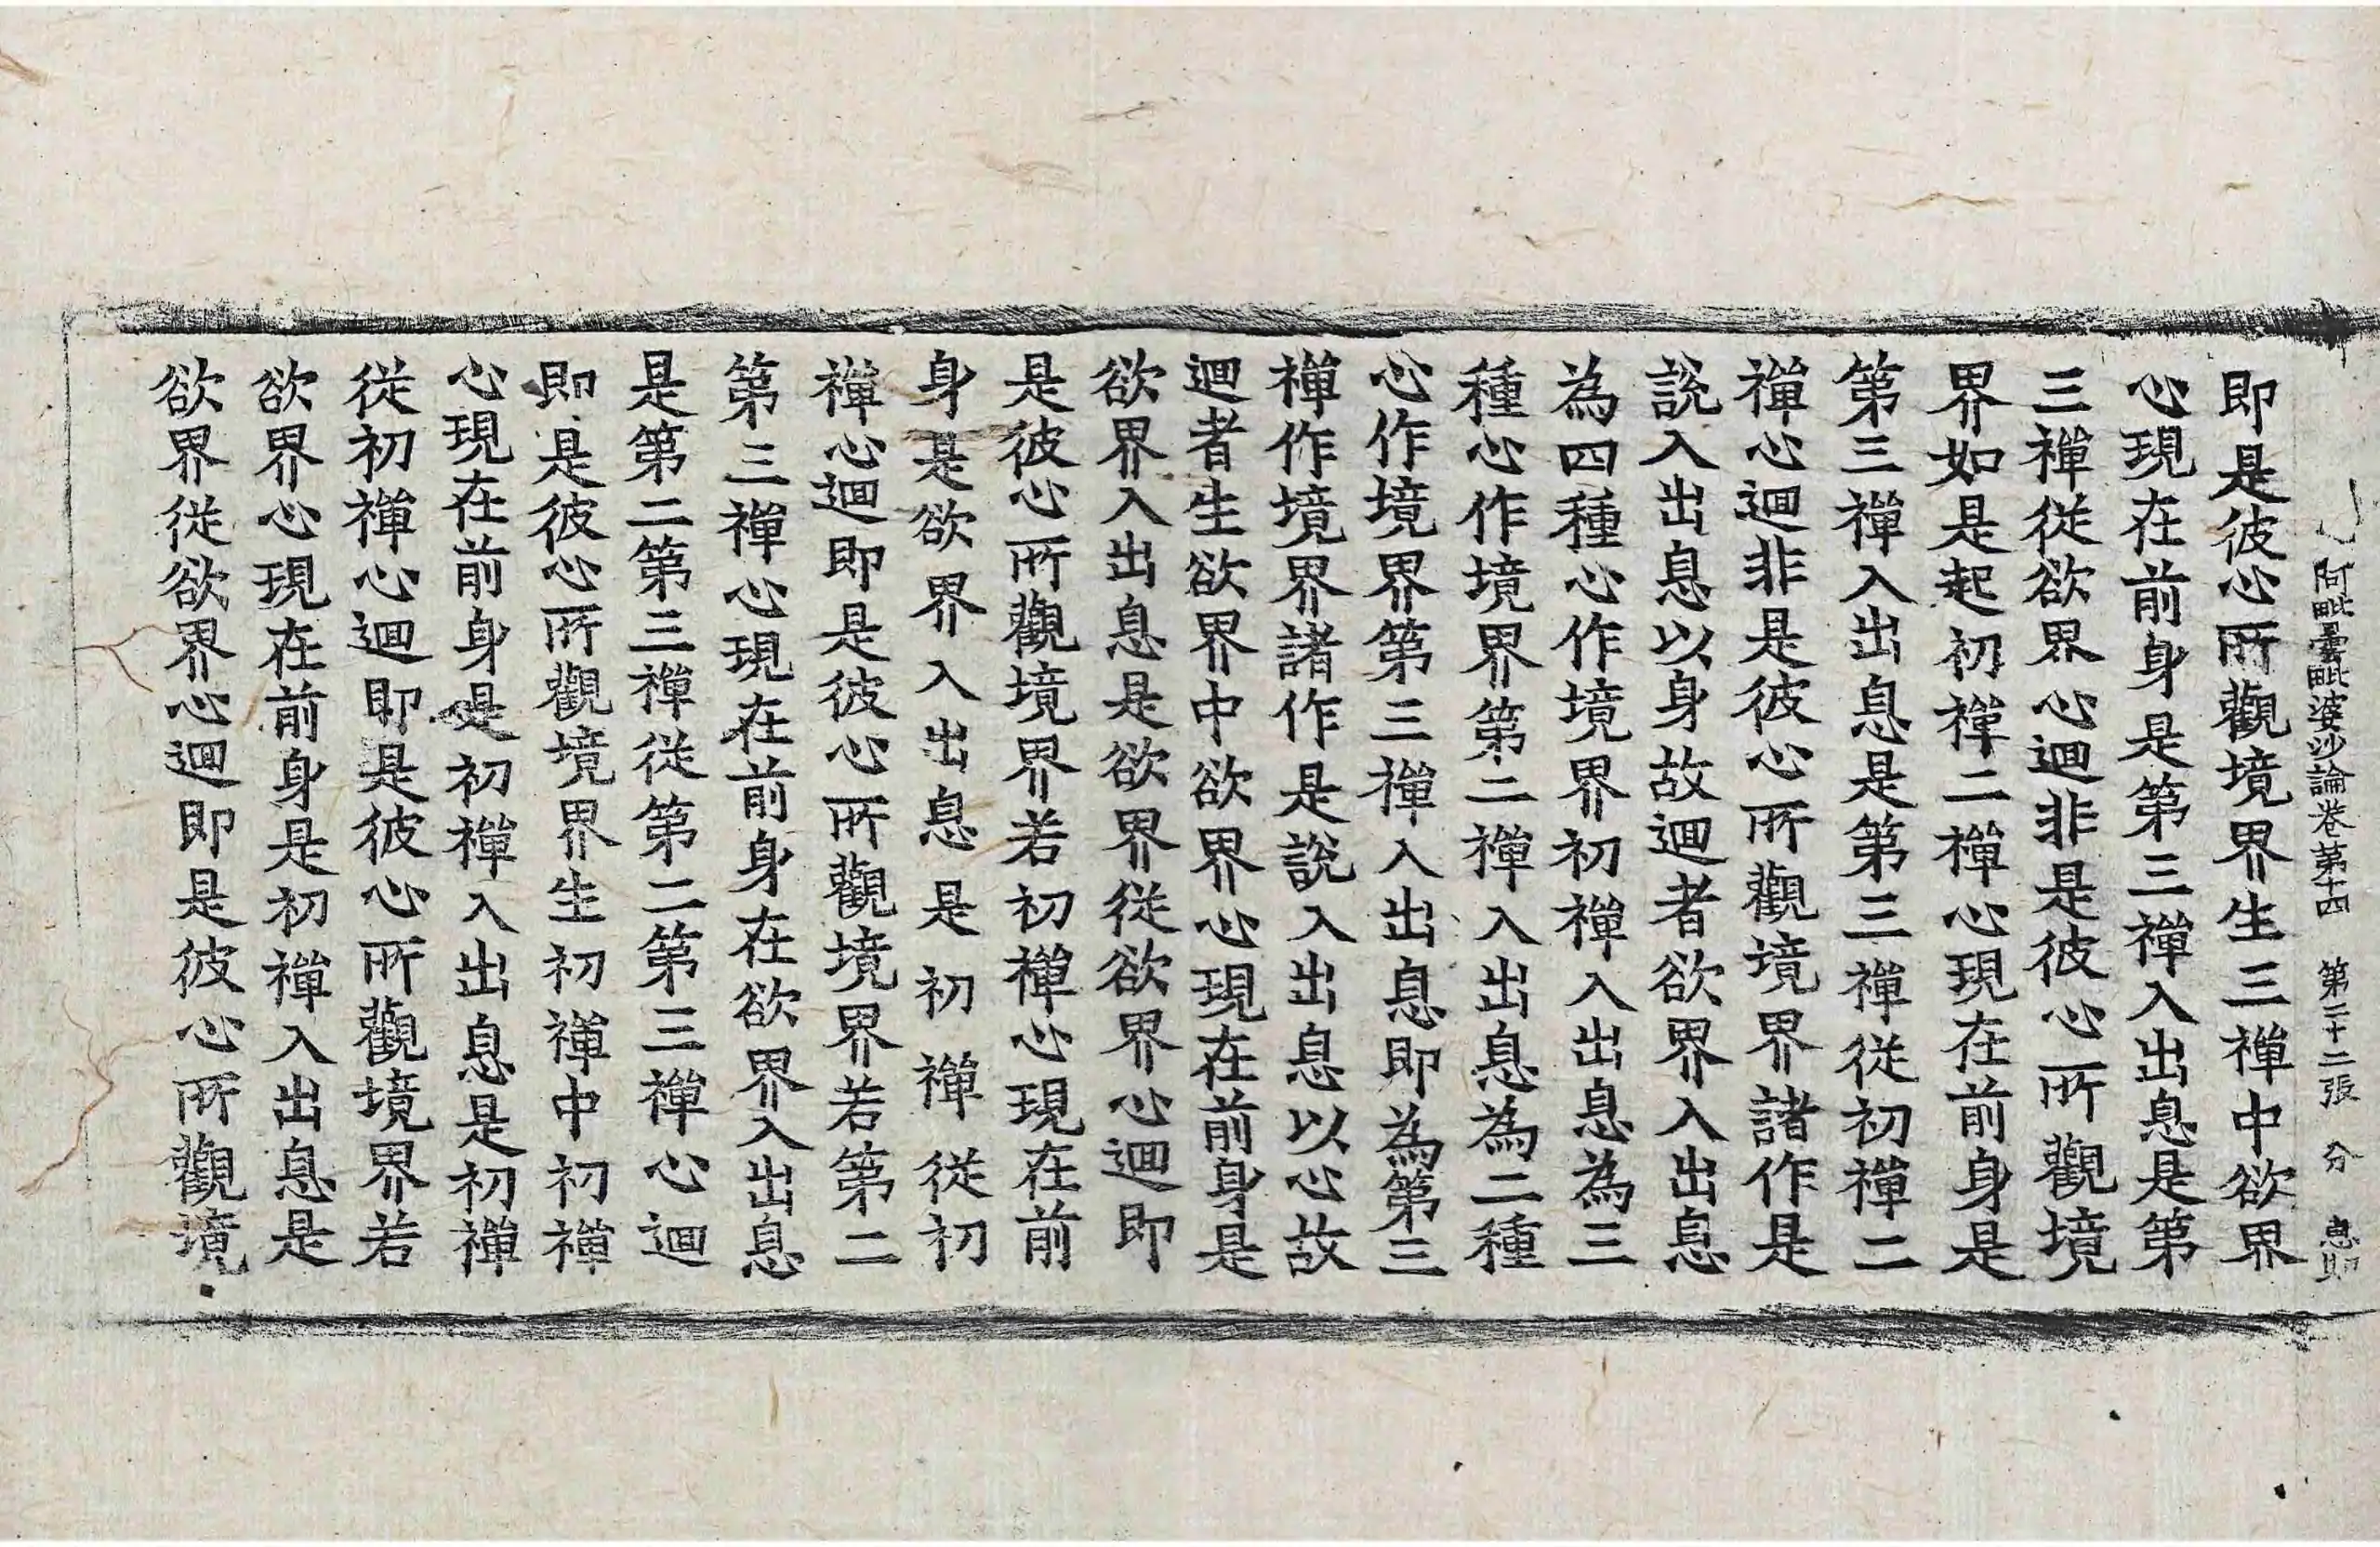 阿毗曇毗婆沙論卷第十四 第二十二張 分
即是彼心所觀境界生三禪中欲界
心現在前身是第三禪入出息是第
三禪從欲界心迴非是彼心所觀境
界如是起初禪二禪心現在前身是
第三禪入出息是第三禪從初禪二
禪心迴非是彼心所觀境界諸作是
說入出息以身故迴者欲界入出息
為四種心作境界初禪入出息為三
種心作境界第二禪入出息為二種
心作境界第三禪入出息即為第三
禪作境界諸作是說入出息以心故
迴者生欲界中欲界心現在前身是
欲界入出息是欲界從欲界心迴即
是彼心所觀境界若初禪心現在前
身是欲界入出息是初禪從初
禪心迴即是彼心所觀境界若第二
第三禪心現在前身在欲界入出息
是第二第三禪從第二第三禪心迴
即是彼心所觀境界生初禪中初禪
心現在前身是初禪入出息是初禪
從初禪心迴即是彼心所觀境界若
欲界心現在前身是初禪入出息是
欲界從欲界心迴即是彼心所觀境